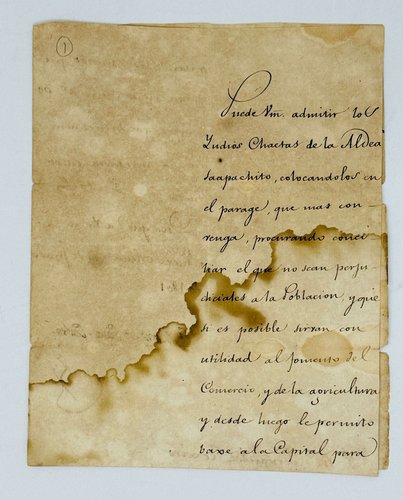 1
Puede Vm. admitir los
Yndios Chactas de la Aldea
saapachito, colocandolos en
el parage, que mas con-
venga, procurando conci
liar el que no sean perju-
diciales a la Poblacion, y que
si es posible sirvan con
utilidad al fomento del
Comercio, y de la agricultura
y desde luego le permito
baxe a la Capital para